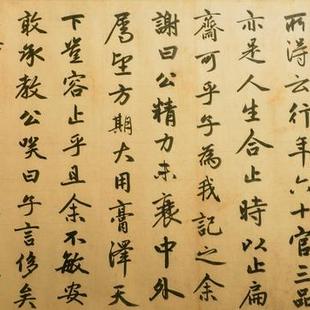 所得云行年六十官三品
亦足人生合止時以止扁
齋可乎子為我記之余
謝曰公精力未衰中外
屬望方期大用膏澤天
下豈容止乎且余不敏安
敢承教公笑曰子言侈矣